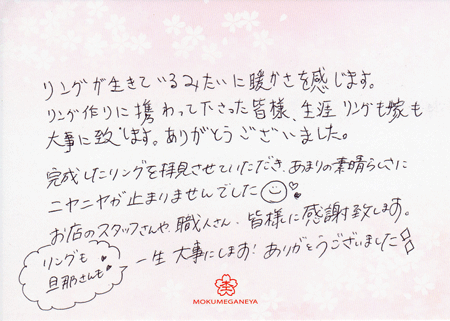 リングが生きているみたいに暖かさを感じます。
リング作りに携わって下さった皆様、生涯リングも嫁も
大事に致します。ありがとうございました。
完成したリングを拝見させていただき、あまりの素晴らしさに
ニヤニヤが止まりませんでした
お店のスタッフさんや、職人さん、皆様に感謝致します。
リングも
旦那さんも
一生大事にします!ありがとうございました
MOKUMEGANEYA